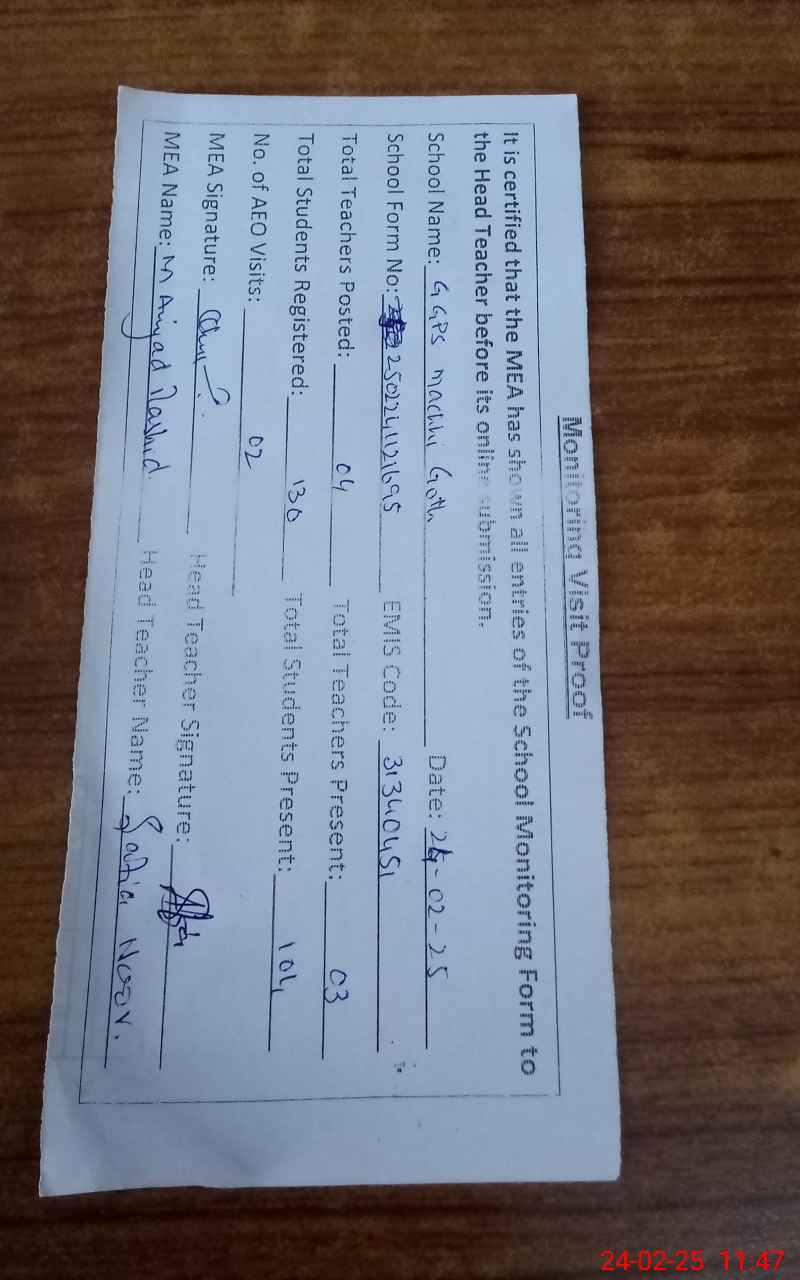 Monitoring Visit Proof
It is certified that the MEA has shown all entries of the School Monitoring Form to
the Head Teacher before its online submission.
School Name: GGPS machhi Goth Date: 24-02-25
School Form No: EMIS Code: 31340451
Total Teachers Posted: 04 Total Teachers Present: 03
Total Students Registered: 130 Total Students Present: 104
No. of AEO Visits: 02
MEA Signature: Head Teacher Signature:
MEA Name: M Amjad Rashid. Head Teacher Name: Noor.
24-02-25 11:47